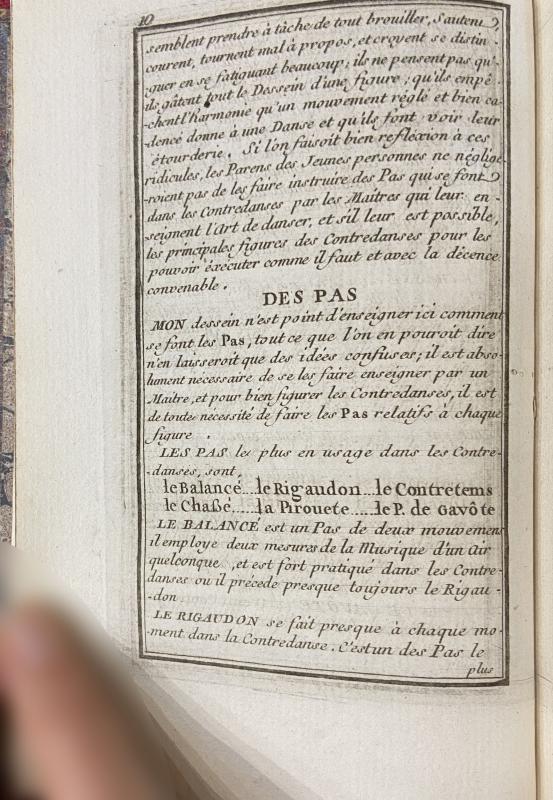 10
semblent prendre à tâche de tout brouiller, Sautent,
courent, tournent mal à propos, et croyent se distin-
-guer en se fatiguant beaucoup; ils ne pensent pas qu'
ils gâtent tout le Dessein d'une figure; qu'ils empê-
-chent l'harmonie qu'un mouvement réglé et bien ca-
-dencé donne à une Danse et qu'ils font voir leur
étourderie. Si l'on faisoit bien refléxion à ces
ridicules, les Parens des Jeunes personnes ne néglige-
-roient pas de les faire instruire des Pas qui se font
dans les Contredanses par les Maîtres qui leur en-
-seignent l'Art de danser, et s'il leur est possible,
les principales figures des Contredanses pour les
pouvoir éxécuter comme il faut et avec la décence
convenable.
DES PAS
MON dessein n'est point d'enseigner ici comment
se font les Pas, tout ce que l'on en pouroit dire
n'en laisseroit que des idées confuses; il est abso-
-lument nécessaire de se les faire enseigner par un
Maître, et pour bien figurer les Contredanses, il est
de toute nécessité de faire les Pas relatifs à chaque
figure.
LES PAS les plus en usage dans les Contre-
-danses, sont,
le Balancé....le Rigaudon...le Contretems
le Chaßé.....la Pirouete.....le P. de Gavôte
LE BALANCÉ est un Pas de deux mouvemens
il employe deux mesures de la Musique d'un Air
quelconque, et est fort pratiqué dans les Contre-
danses ou il précede presque toujours le Rigau-
-don
LE RIGAUDON se fait presque à chaque mo-
-ment dans la Contredanse. C'est un des Pas le
plus